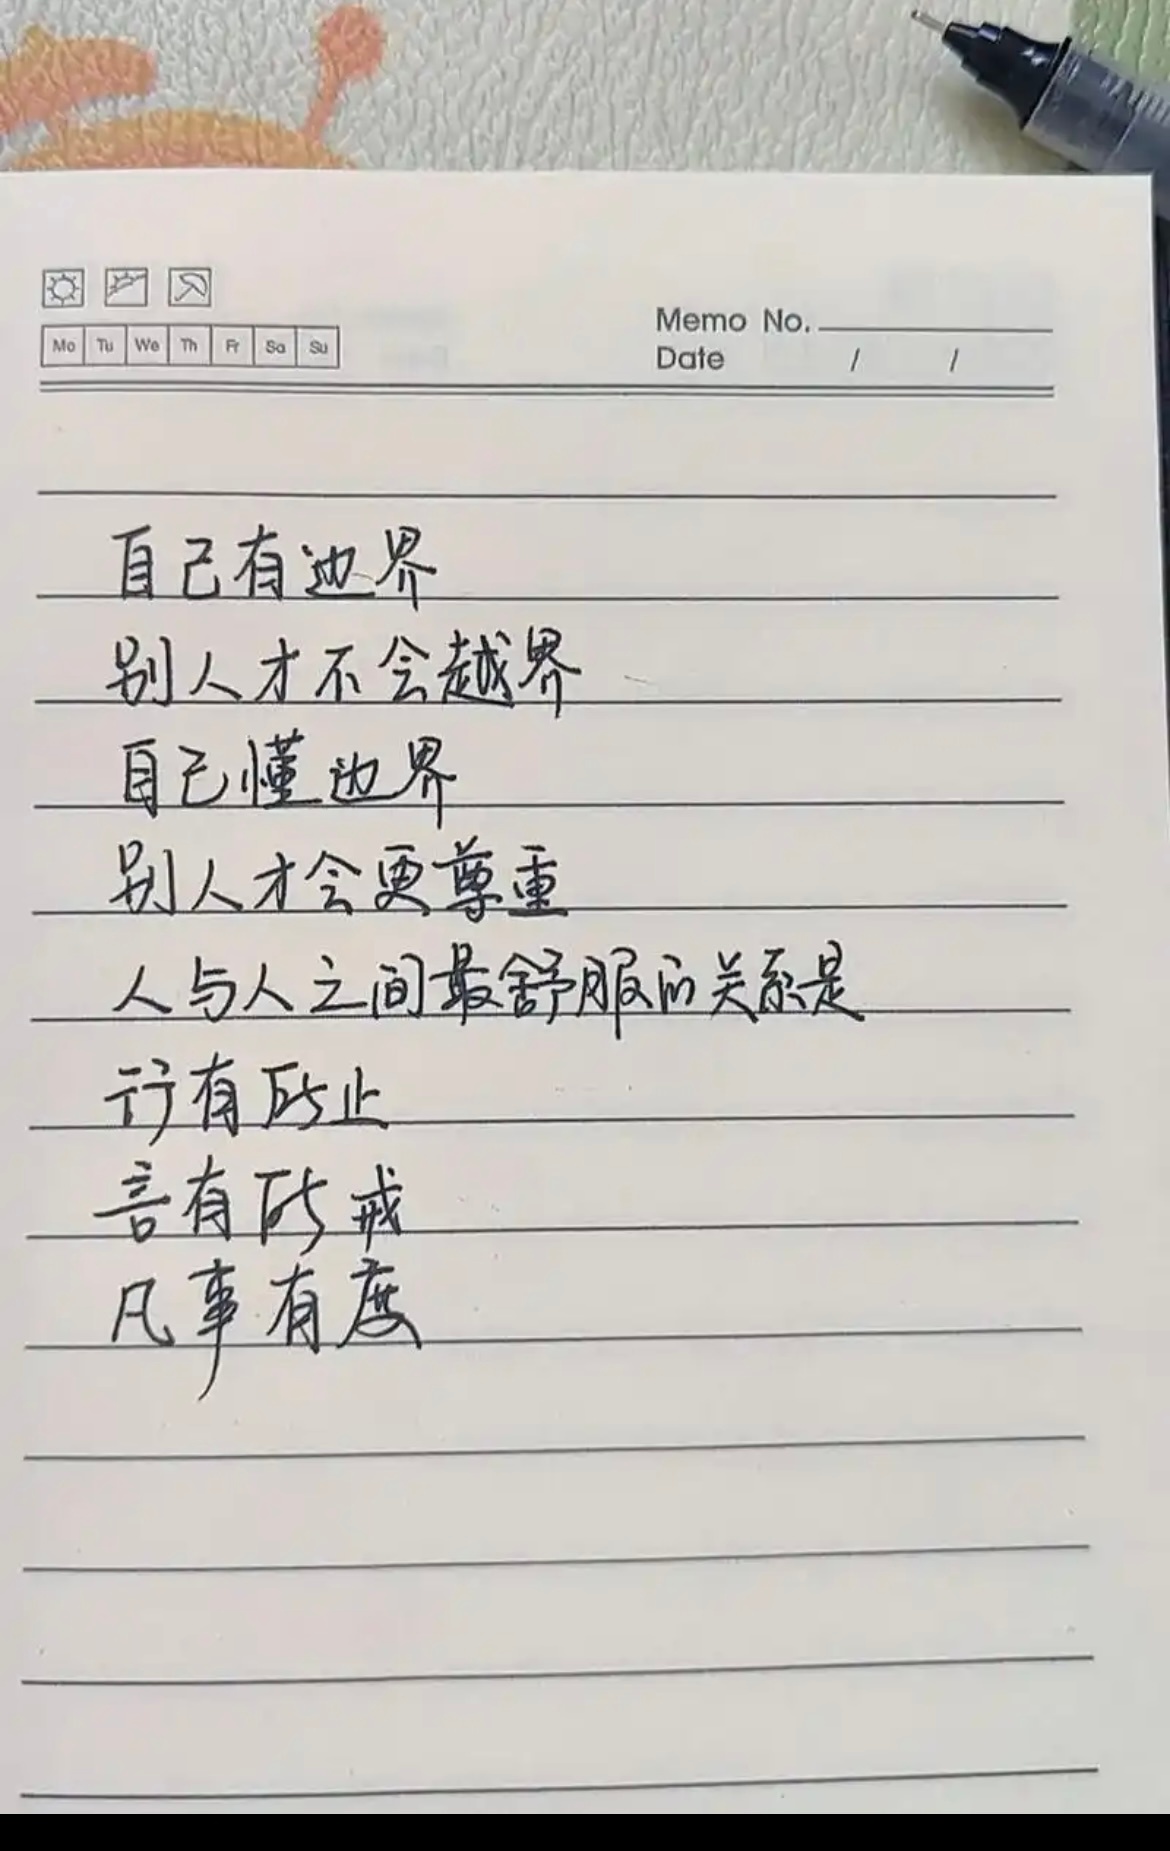 Mo Tu We Th Fr Sa Su
Memo No.
Date / /
自己有边界
别人才不会越界
自己懂边界
别人才会更尊重
人与人之间最舒服的关系是
行有所止
言有所戒
凡事有度